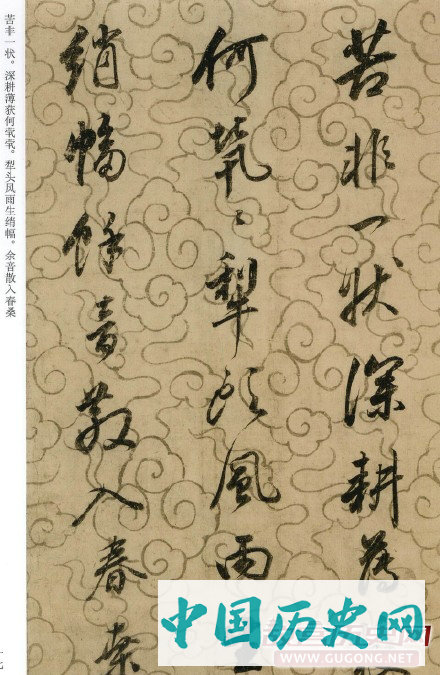 苦非一状深耕薄
何煢〻犁頭風雨
綃幅餘音散入春桑
苦非一状。深耕薄获何茕茕。犁头风雨生绡幅。余音散入春桑
中国历史网
WWW.GUGONG.NET